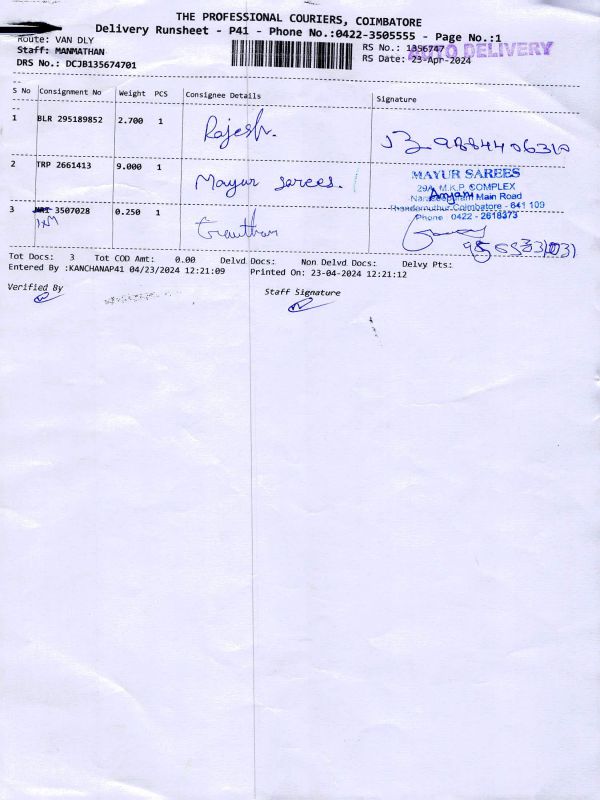 THE PROFESSIONAL COURIERS, COIMBATORE
Delivery Runsheet - P41 - Phone No.:0422-3505555 - Page No.:1
Route: VAN DLY
Staff: MANMATHAN
DRS No.: DCJB135674701
RS No.: 1356747
RS Date: 23-Apr-2024
AUTO DELIVERY
S No Consignment No Weight PCS Consignee Details Signature
1 BLR 295189852 2.700 1 Rajesh. 9884406310
2 TRP 2661413 9.000 1 Mayur sarees.
MAYUR SAREES
29A, M.K.P. COMPLEX
Main Road
Coimbatore - 641 109
Phone 0422 - 2618373
Anjan
3 3507028 0.250 1 Gautham
IXM
Tot Docs: 3 Tot COD Amt: 0.00 Delvd Docs: Non Delvd Docs: Delvy Pts:
Entered By :KANCHANAP41 04/23/2024 12:21:09 Printed On: 23-04-2024 12:21:12
Verified By
Staff Signature